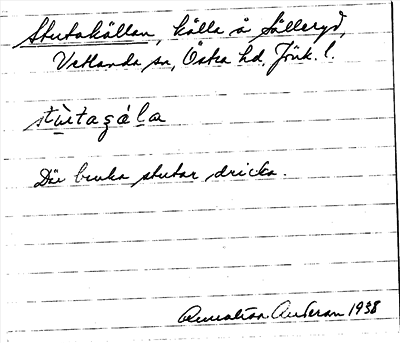 Stutakällan, källa å Sälleryd,
Vetlanda sn, Östra hd, Jönk. l.
stùtaɡála
Där bruka stutar dricka.
Anderson 1938